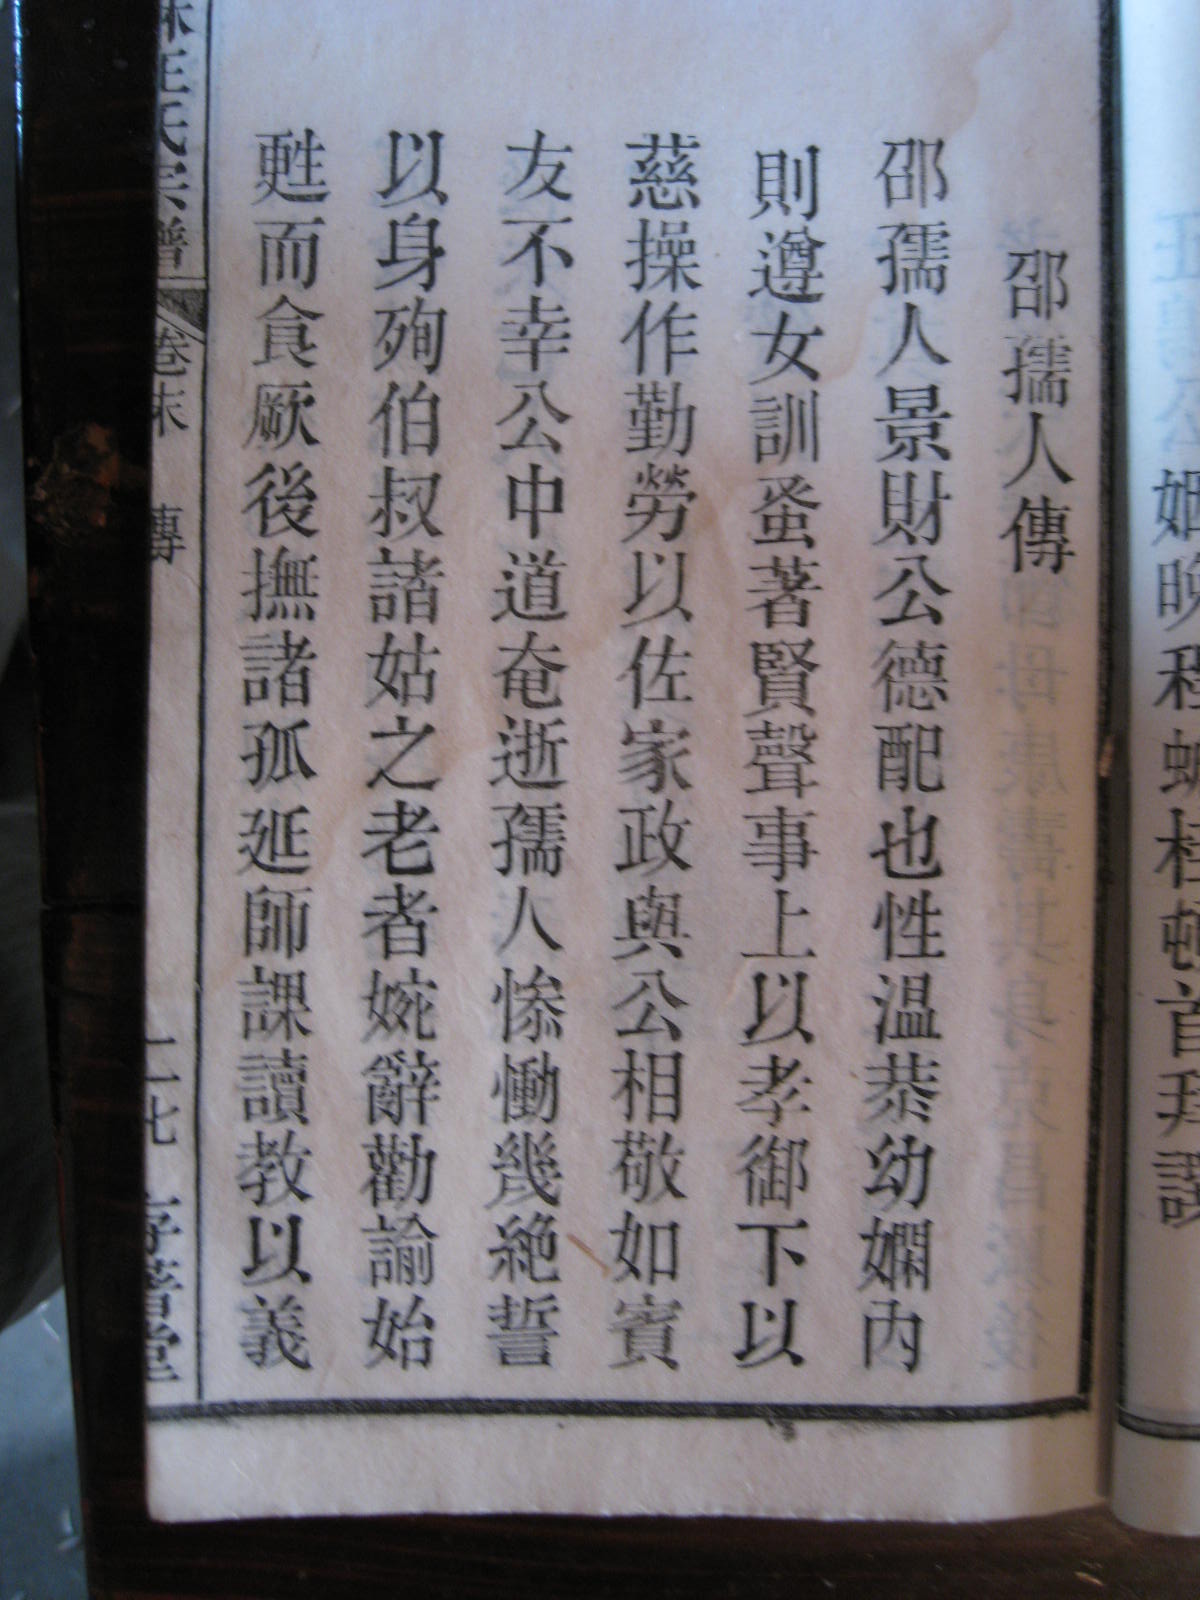 姻晚程蛾桂頓首拜譔
邵孺人傳
邵孺人景財公德配也性温恭幼嫻內
則遵女訓蚤著賢聲事上以孝御下以
慈操作勤勞以佐家政與公相敬如賓
友不幸公中道奄逝孺人慘慟幾絶誓
以身殉伯叔諸姑之老者婉辭勸諭始
甦而食厥後撫諸孤延師課讀教以義
王氏宗譜 卷末 傳